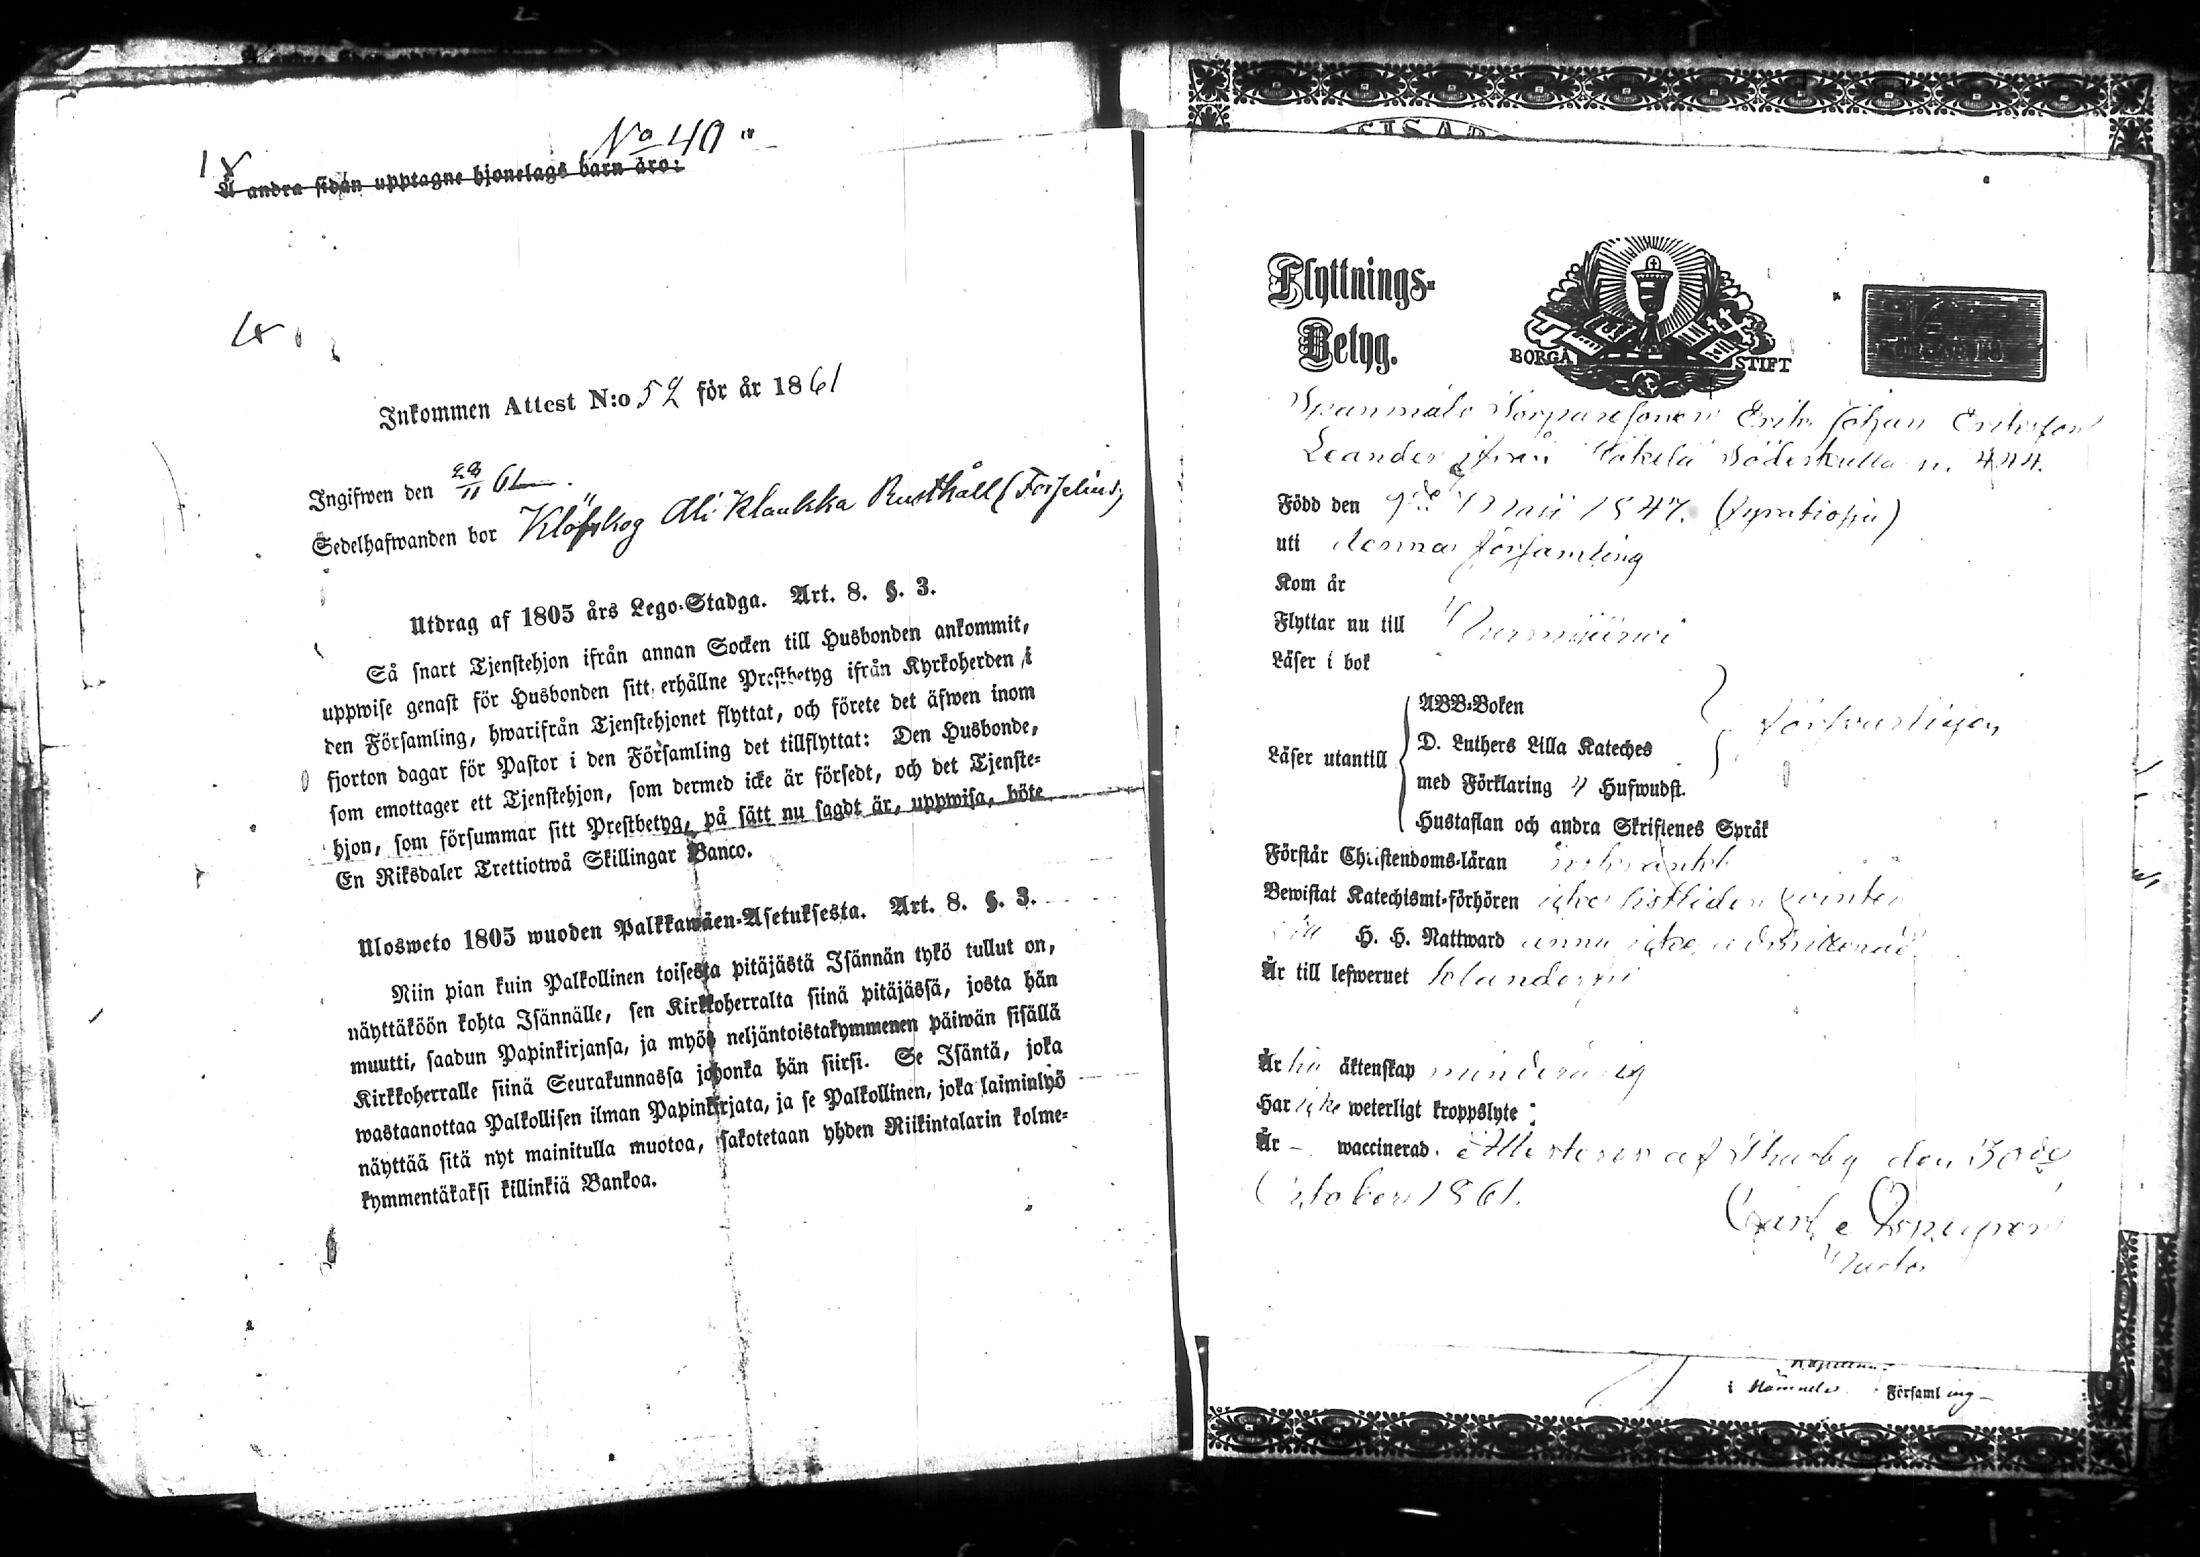 No 40
Å andra sidan upptagne hjonelags barn äro:
Inkommen Attest N:o 52 för år 1861
Ingifwen den 28/11 61.
Sedelhafwanden bor Klöfskog Ali Klaukka Rusthåll (Forselius)
Utdrag af 1805 års Lego-Stadga. Art. 8. §. 3.
Så snart Tjenstehjon ifrån annan Socken till Husbonden ankommit,
uppwise genast för Husbonden sitt erhållne Prestbetyg ifrån Kyrkoherden i
den Församling, hwarifrån Tjenstehjonet flyttat, och förete det äfwen inom
fjorton dagar för Pastor i den Församling det tillflyttat: Den Husbonde,
som emottager ett Tjenstehjon, som dermed icke är försedt, och det Tjenste-
hjon, som försummar sitt Prestbetyg, på sätt nu sagdt är, uppwisa, böte
En Riksdaler Trettiotwå Skillingar Banco.
Ulosweto 1805 wuoden Palkkawäen-Asetuksesta. Art. 8. §. 3.
Niin pian kuin Palkollinen toisesta pitäjästä Isännän tykö tullut on,
näyttäköön kohta Isännälle, sen Kirkkoherralta siinä pitäjässä, josta hän
muutti, saadun Papinkirjansa, ja myös neljäntoistakymmenen päiwän sisällä
Kirkkoherralle siinä Seurakunnassa johonka hän siirsi. Se Isäntä, joka
wastaanottaa Palkollisen ilman Papinkirjata, ja se Palkollinen, joka laiminlyö
näyttää sitä nyt mainitulla muotoa, sakotetaan yhden Riikintalarin kolme-
kymmentäkaksi killinkiä Bankoa.
Flyttnings-
Betyg.
BORGÅ STIFT
Spanmäls Torparesonen Erik Johan Eriksson
Leander ifrån Söderkulla n. 444.
Född den 9de Maii 1847.
uti denna församling
Kom år
Flyttar nu till Nurmijärwi
Läser i bok
Läser utantill
ABB-Boken
D. Luthers Lilla Kateches
med Förklaring 4 Hufwudst.
Hustaflan och andra Skriftenes Språk
försvarligen
Förstår Christendoms-läran
Bewistat Katechismi-förhören icke sistliden vinter
H. H. Nattward ännu icke admitterad
Är till lefwernet klanderfri
Är till äktenskap minderårig
Har icke weterligt kroppslyte:
Är - waccinerad. Attesteras af Thusby den 30de
October 1861.
Carl
Pastor
i Församling